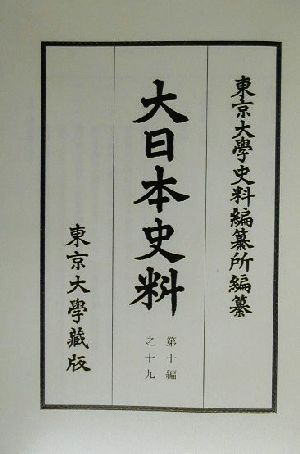 東京大學史料編纂所編纂
大日本史料
第十編
之十九
東京大學藏版